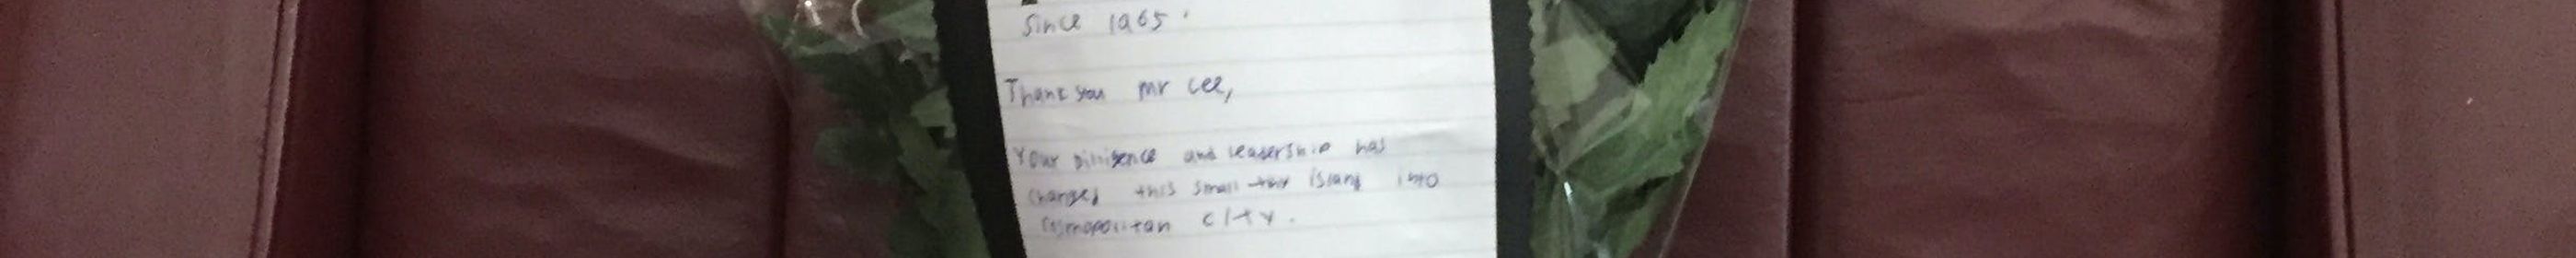 Since 1965.
Thank you Mr Lee,
Your diligence and leadership has
changed this small island into
cosmopolitan city.